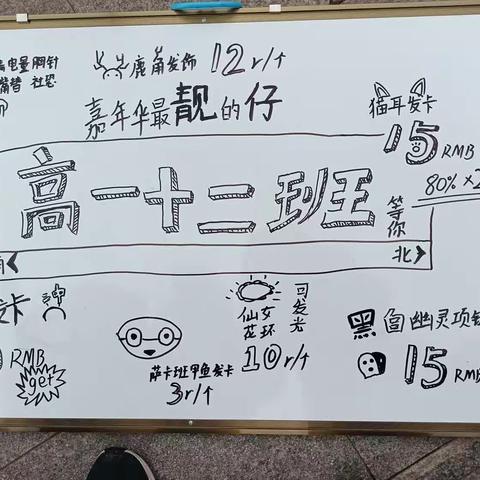 电量 胸针
社恐
鹿角发饰 12r/个
嘉年华最靓的仔
猫耳发卡
15RMB
80%×2
高一十二班
等你
北
可发光
仙女花环
10r/个
萨卡班甲鱼发卡
3r/个
神
RMB
get
黑 幽灵项链
15RMB